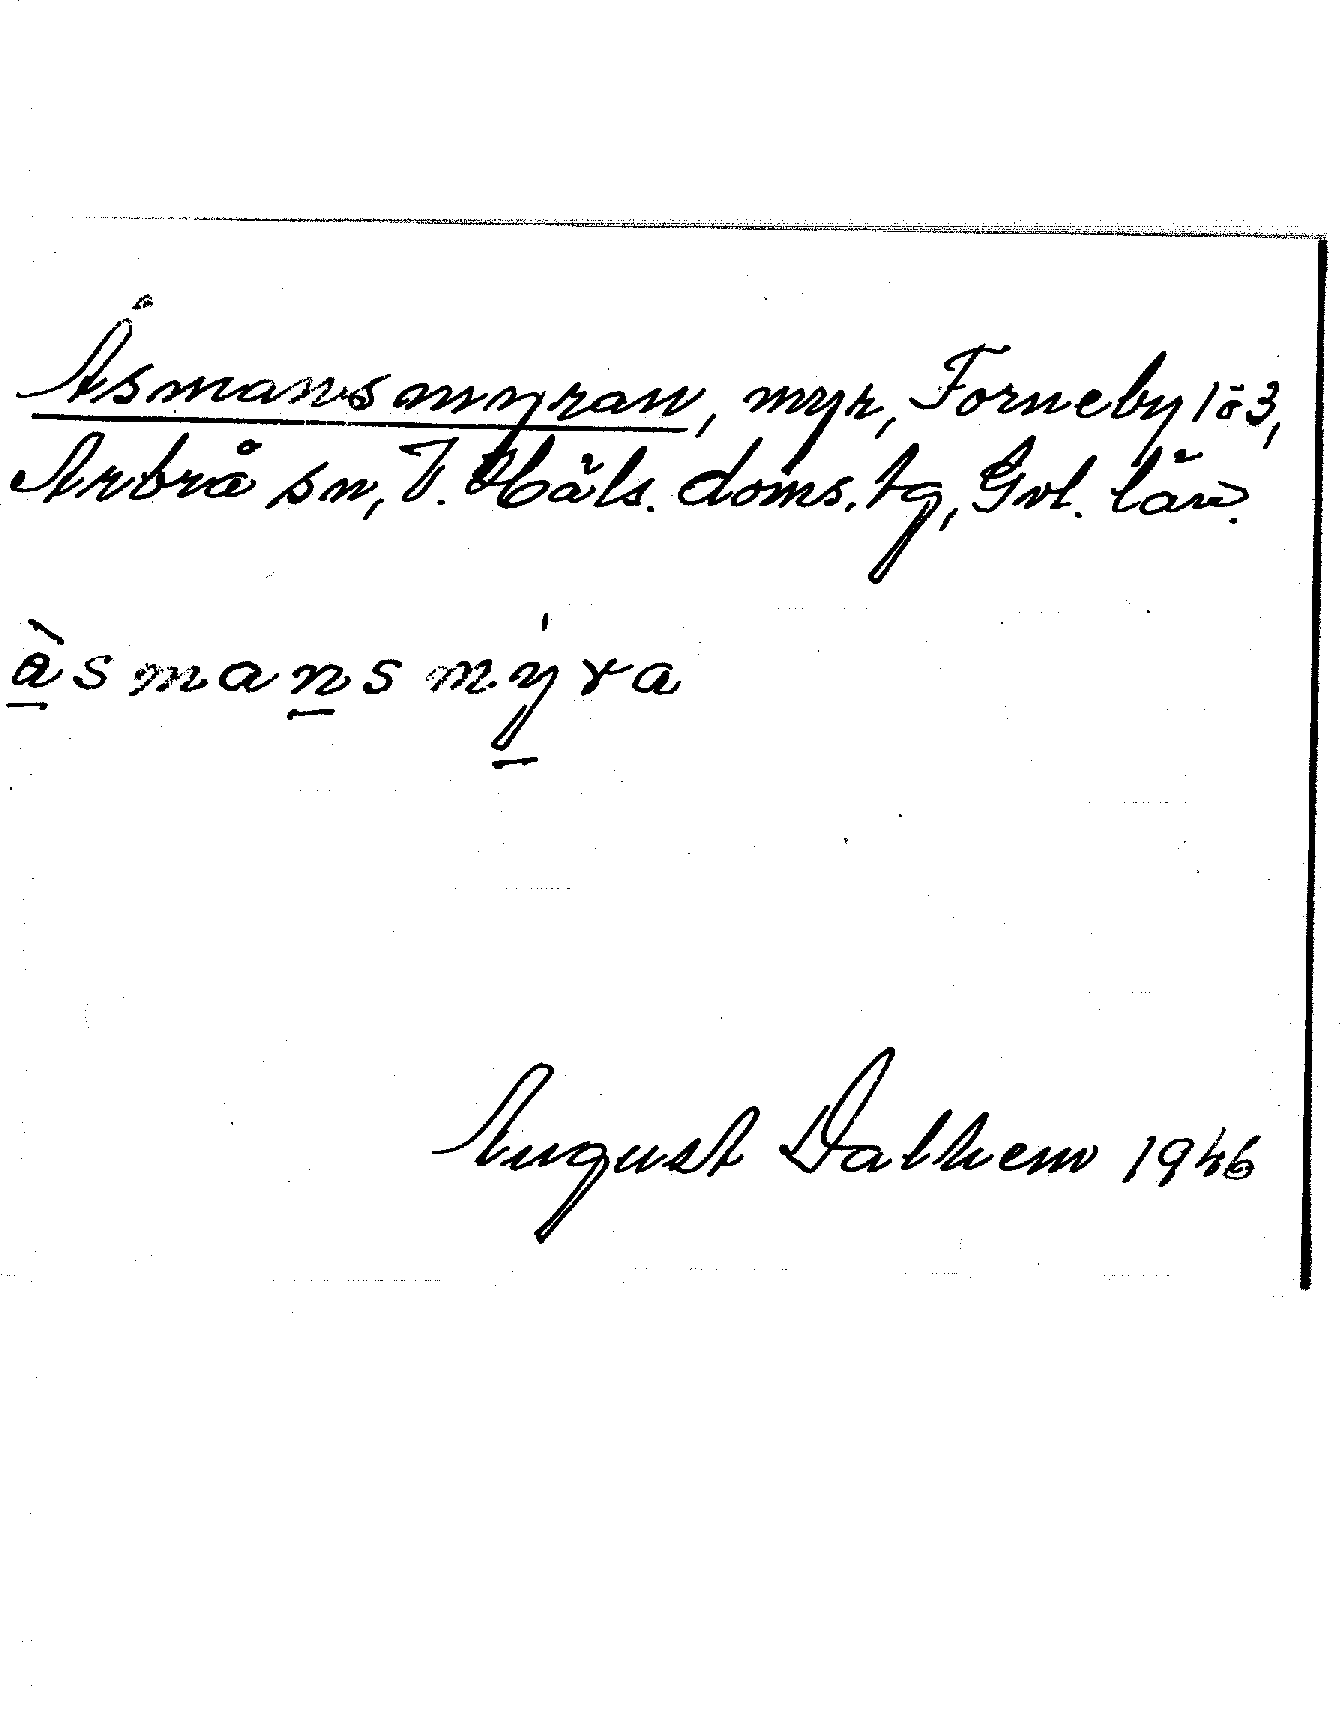 Åsmansmyran, myr, Forneby 1 o 3,
Arbrå sn, V. Häls. doms. tg, Gvl. län.
åsmansmyra
August Dalhem 1946